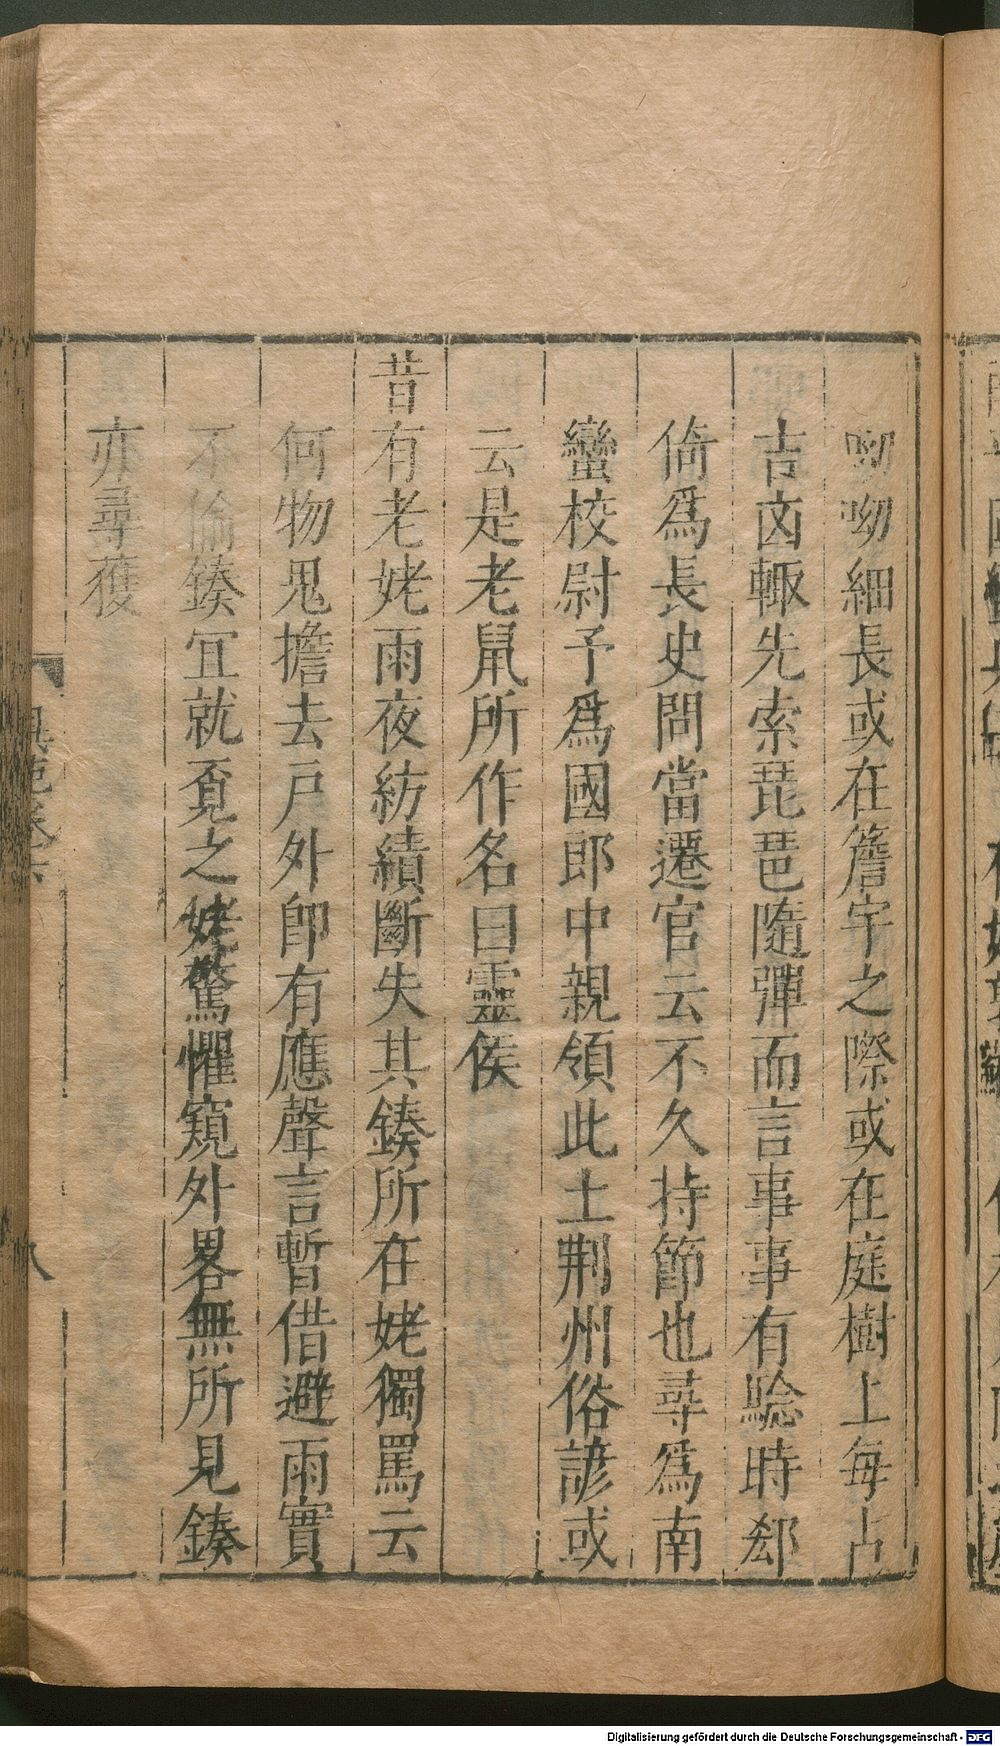 呦呦細長或在簷宇之際或在庭樹上每占
吉凶輙先索琵琶隨彈而言事事有驗時郄
倚爲長史問當遷官云不久持節也尋爲南
蠻校尉予爲國郎中親領此土荆州俗諺或
云是老鼠所作名曰靈侯
昔有老姥雨夜紡績斷失其鍨所在姥獨罵云
何物鬼擔去戸外卽有應聲言暫借避雨實
不偷鍨冝就覔之姥驚懼窺外畧無所見鍨
亦尋獲
異苑卷六
八
Digitalisierung gefördert durch die Deutsche Forschungsgemeinschaft - DFG